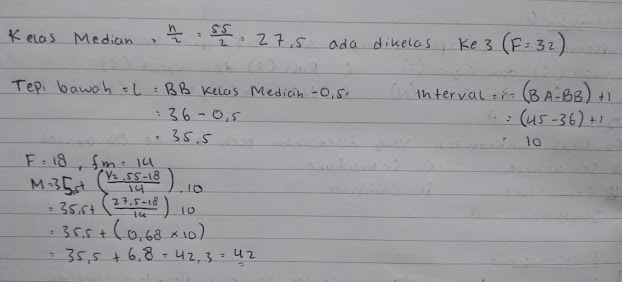 Kelas Median = n/2 = 55/2 = 27,5 ada dikelas ke 3 (F=32)
Tepi bawah = L = BB kelas Median - 0,5. Interval = i = (BA-BB) +1
= 36 - 0,5 = (45-36) +1
= 35,5 = 10
F = 18 , fm = 14
M = 35,5+ (1/2 . 55-18 / 14) . 10
= 35,5+ (27,5-18 / 14) . 10
= 35,5 + (0,68 x 10)
= 35,5 + 6,8 = 42,3 = 42